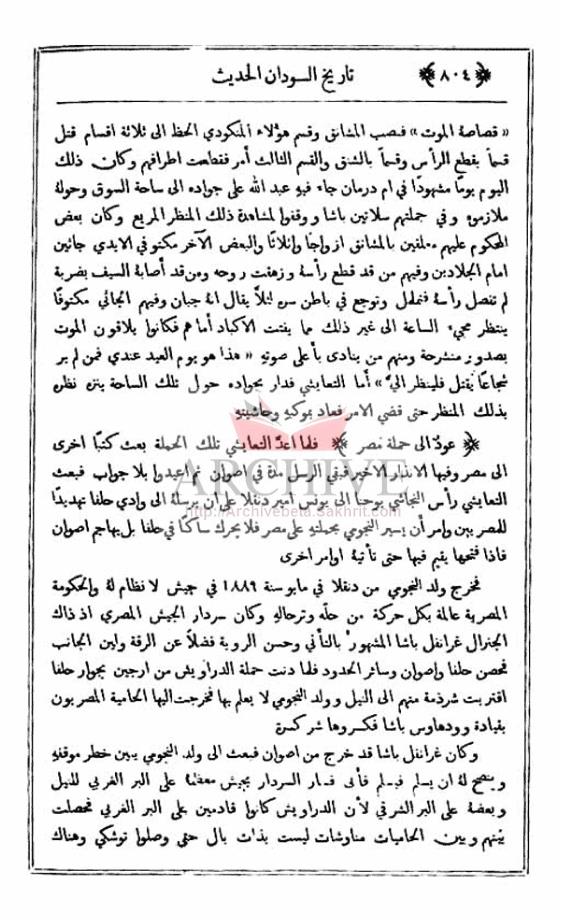 ﴿ ٨٠٤ ﴾ تاريخ السودان الحديث
« قصاصة الموت » فنصب المشانق وقسم هؤلاء المنكودي الحظ الى ثلاثة اقسام قتل
قسماً بقطع الرأس وقسماً بالشنق والقسم الثالث أمر فقطعت اطرافهم وكان ذلك
اليوم يوماً مشهودًا في ام درمان جاء فيهِ عبد الله على جواده الى ساحة السوق وحولهُ
ملازموه وفي جملتهم سلاتين باشا ووقفوا لمشاهدة ذلك المنظر المريع وكان بعض
المحكوم عليهم معلقين بالمشانق ازواجاً واثلاثًا والبعض الآخر مكتوفي الايدي جاثين
امام الجلادين وفيهم من قد قطع رأسهُ وزهقت روحه ومن قد أصابهُ السيف بضربة
لم تفصل رأسهُ فتململ وتوجع في باطن سره لئلاَّ يقال انهُ جبان وفيهم الجاثي مكتوفًا
ينتظر مجيء الساعة الى غير ذلك مما يفتت الاكباد أمامهم فكانوا يلاقون الموت
بصدور منشرحة ومنهم من ينادي بأعلى صوتهِ « هذا هو يوم العيد عندي فمن لم ير
شجاعاً يُقتل فلينظر اليَّ » أما التعايشي فدار بجواده حول تلك الساحة ينزه نظرهُ
بذلك المنظر حتى قضي الامر فعاد بموكبهِ وحاشيتهِ
﴿ عودٌ الى حملة مصر ﴾ فلما اعدَّ التعايشي تلك الحملة بعث كتبًا اخرى
الى مصر وفيها الانذار الاخير فبقي الرسل مدة في اصوان ثم اعيدوا بلا جواب فبعث
التعايشي رأس النجاشي يوحنا الى يونس امير دنقلا على ان يرسلهُ الى وادي حلفا تهديدًا
للمصريين وامر أن يسير النجومي بحملتهِ على مصر فلا يحرك ساكنًا في حلفا بل يهاجم اصوان
فاذا فتحها يقيم فيها حتى تأتيهُ اوامر اخرى
فخرج ولد النجومي من دنقلا في مايو سنة ١٨٨٩ في جيش لا نظام لهُ والحكومة
المصرية عالمة بكل حركة من حلّه وترحاله وكان سردار الجيش المصري اذ ذاك
الجنرال غرانفل باشا المشهور بالتأني وحسن الروية فضلاً عن الرقة ولين الجانب
فحصن حلفا واصوان وسائر الحدود فلما دنت حملة الدراويش من ارجين بجوار حلفا
اقتربت شرذمة منهم الى النيل وولد النجومي لا يعلم بها فخرجت اليها الحامية المصريون
بقيادة وودهاوس باشا فكسروها شر كسرة
وكان غرانفل باشا قد خرج من اصوان فبعث الى ولد النجومي يبين خطر موقفهِ
وينصح لهُ ان يسلم فيسلم فأبى فسار السردار بجيش معظمهُ على البر الغربي للنيل
وبعضهُ على البر الشرقي لأن الدراويش كانوا قادمين على البر الغربي فحصلت
بينهم وبين الحاميات مناوشات ليست بذات بال حتى وصلوا توشكي وهناك
ARCHIVE
http://Archivebeta.Sakhrit.com